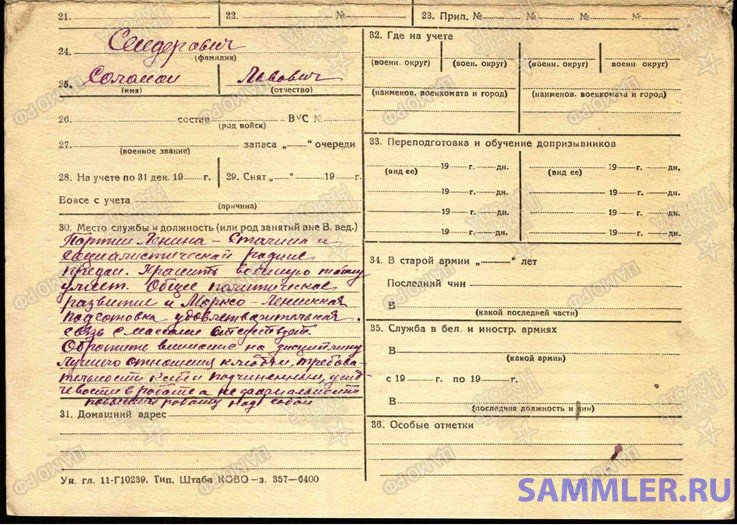 21. 22. № 23. Прип. № № №
24. Сендерович
(фамилия)
25. Соломон Львович
(имя) (отчество)
26. состав ВУС №
(род войск)
27. запаса „ “ очереди
(военное звание)
28. На учете по 31 дек. 19 г. 29. Снят „ “ 19 г.
Вовсе с учета
(причина)
30. Место службы и должность (или род занятий вне В. вед.)
Партии Ленина - Сталина и
социалистической родине
предан. Хранить военную тайну
умеет. Общее политическое
развитие и Марксо-Ленинская
подготовка удовлетворительная.
связь с массами
Обратить внимание на дисциплину
отношения к людям, требова-
тельности к себе и подчиненным,
в работе а не
работу над собой
31. Домашний адрес
Уч. гл. 11-Г10239. Тип. Штаба КОВО-з. 357-6400
32. Где на учете
(военн. округ) (воен. округ) (военн. округ) военн. округ)
(наименов. военкомата и город) (наименов. военкомата и город)
33. Переподготовка и обучение допризывников
(вид ее) 19 г. дн. (вид ее) 19 г. дн.
19 г. дн. 19 г. дн.
19 г. дн. 19 г. дн.
19 г. дн. 19 г. дн.
34. В старой армии „ “ лет
Последний чин
В
(какой последней части)
35. Служба в бел. и иностр. армиях
В
(какой армии)
с 19 г. по 19 г.
В
(последняя должность и чин)
36. Особые отметки
SAMMLER.RU